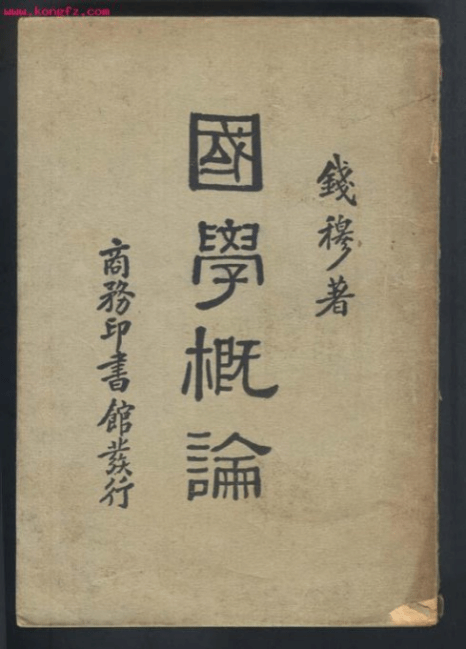 www.kongfz.com
錢穆著
國學概論
商務印書館發行